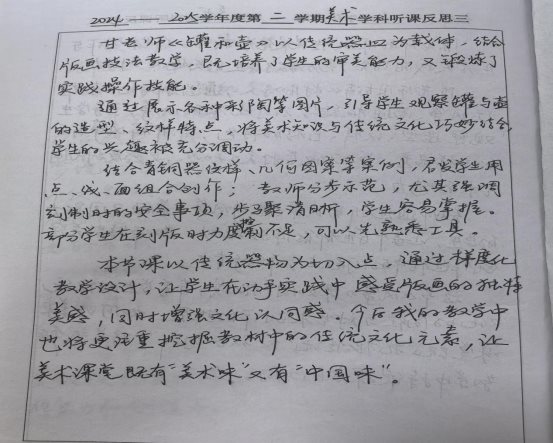 2024—2025学年度第二学期美术学科听课反思三
甘老师《罐和壶》以传统器皿为载体，结合
版画技法教学，既培养了学生的审美能力，又锻炼了
实践操作技能。
通过展示各种彩陶等图片，引导学生观察罐与壶
的造型、纹样特点，将美术知识与传统文化巧妙结合，
学生的兴趣被充分调动。
结合青铜器纹样、几何图案等案例，启发学生用
点、线、面组合创作；教师分步示范，尤其强调
刻制时的安全事项，步骤清晰，学生容易掌握。
部分学生在刻版时力度控制不足，可以先熟悉工具。
本节课以传统器物为切入点，通过梯度化
教学设计，让学生在动手实践中感受版画的独特
美感，同时增强文化认同感。今后我的教学中
也将更注重挖掘教材中的传统文化元素，让
美术课堂既有“美术味”又有“中国味”。